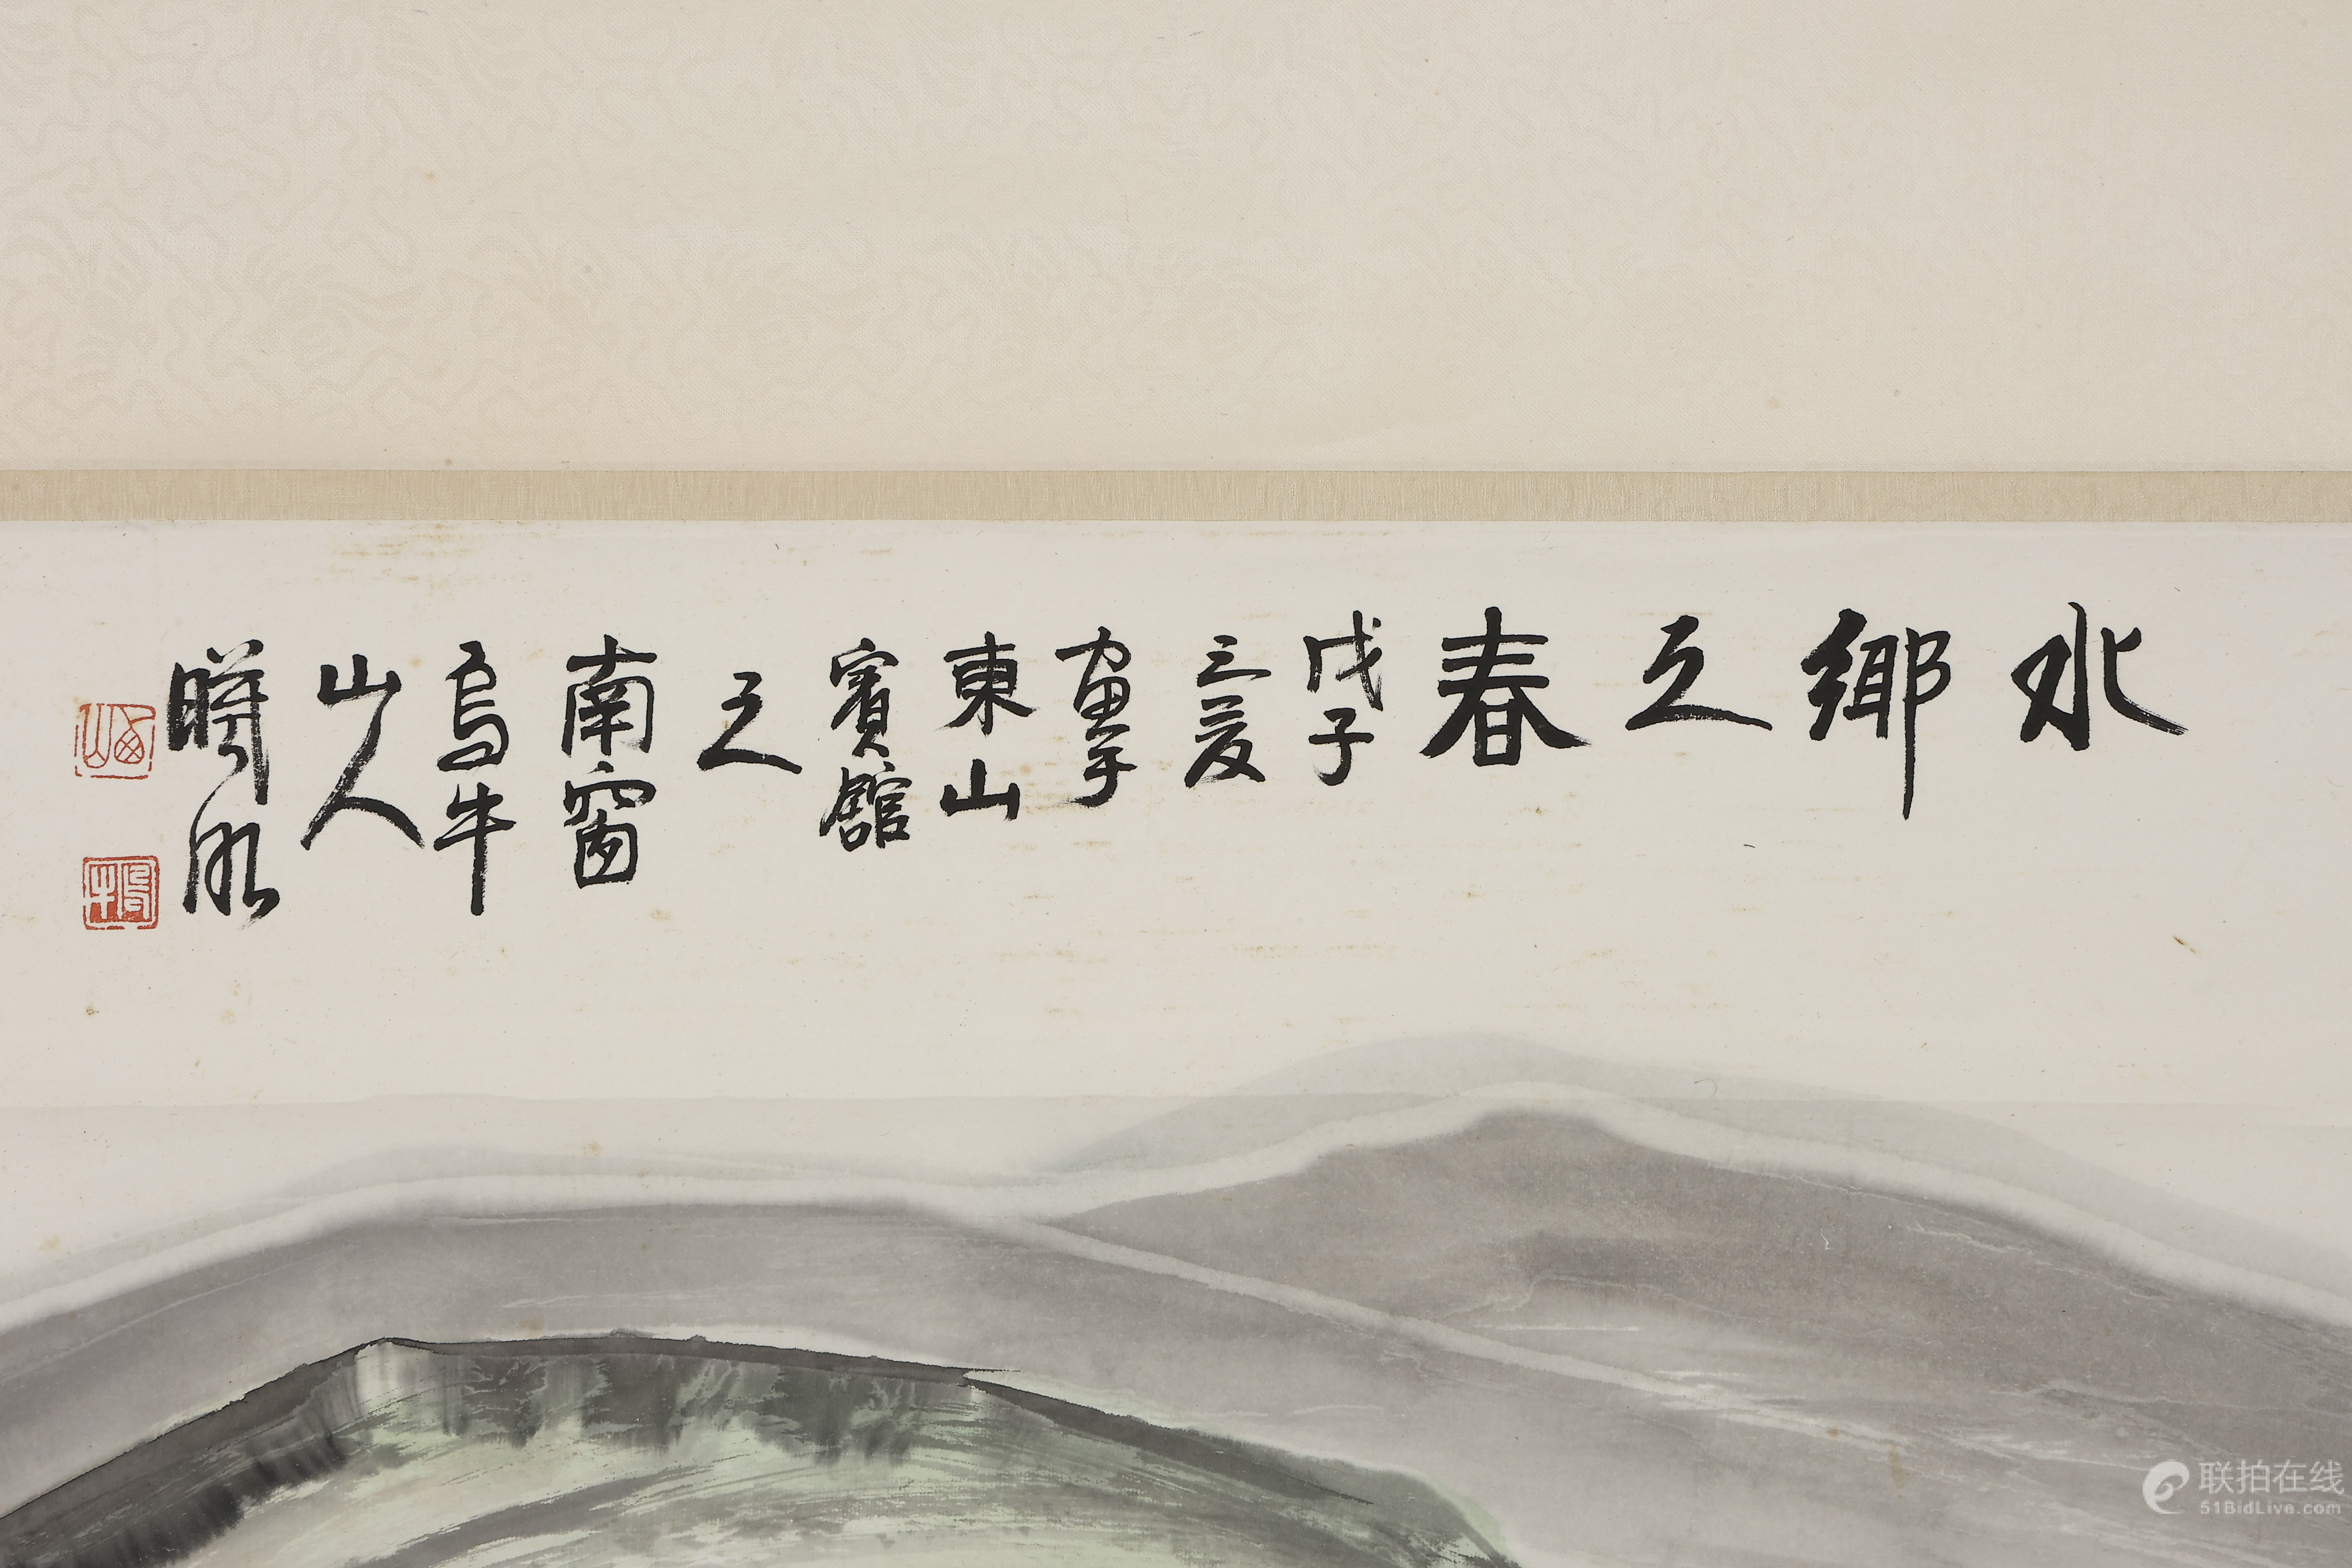 水
鄉
之
春
戊子
三夏
東山
賓館
之
南窗
烏牛
山人
联拍在线
51BidLive.com